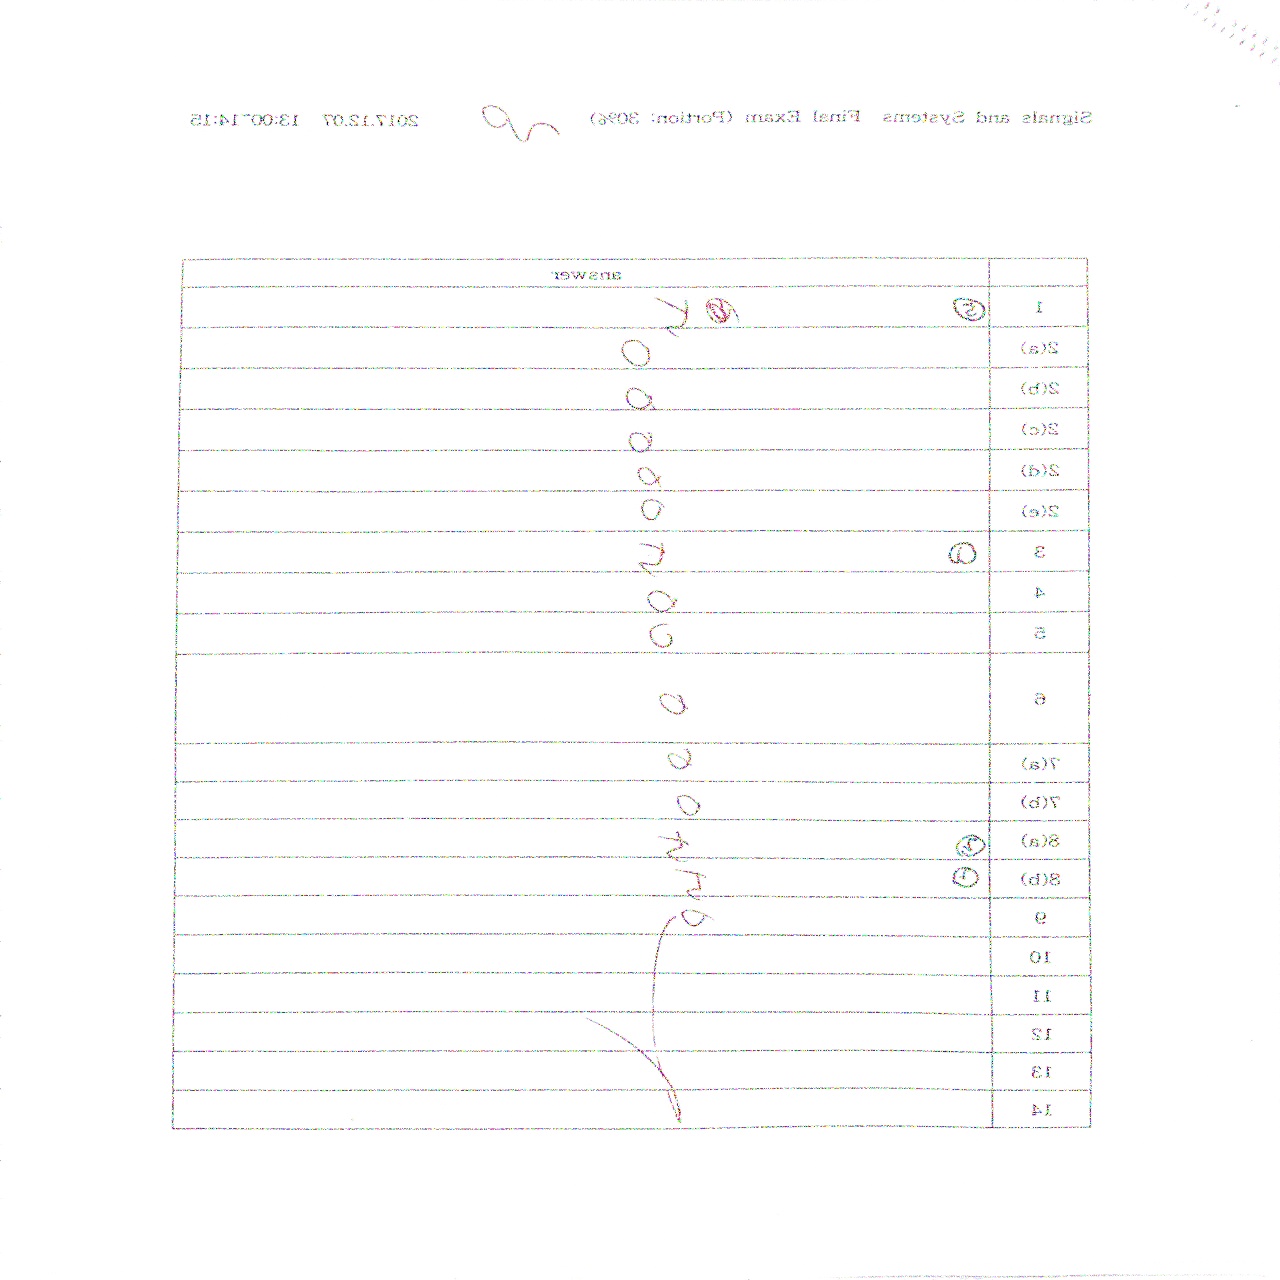 Signals and Systems Final Exam (Portion: 30%) 2017.12.07 13:00~14:15
answer
1 ⑤
2(a) 0
2(b) 0
2(c) 0
2(d) 0
2(e) 0
3 ①
4 0
5 0
6 0
7(a) 0
7(b) 0
8(a)
8(b)
9 0
10
11
12
13
14